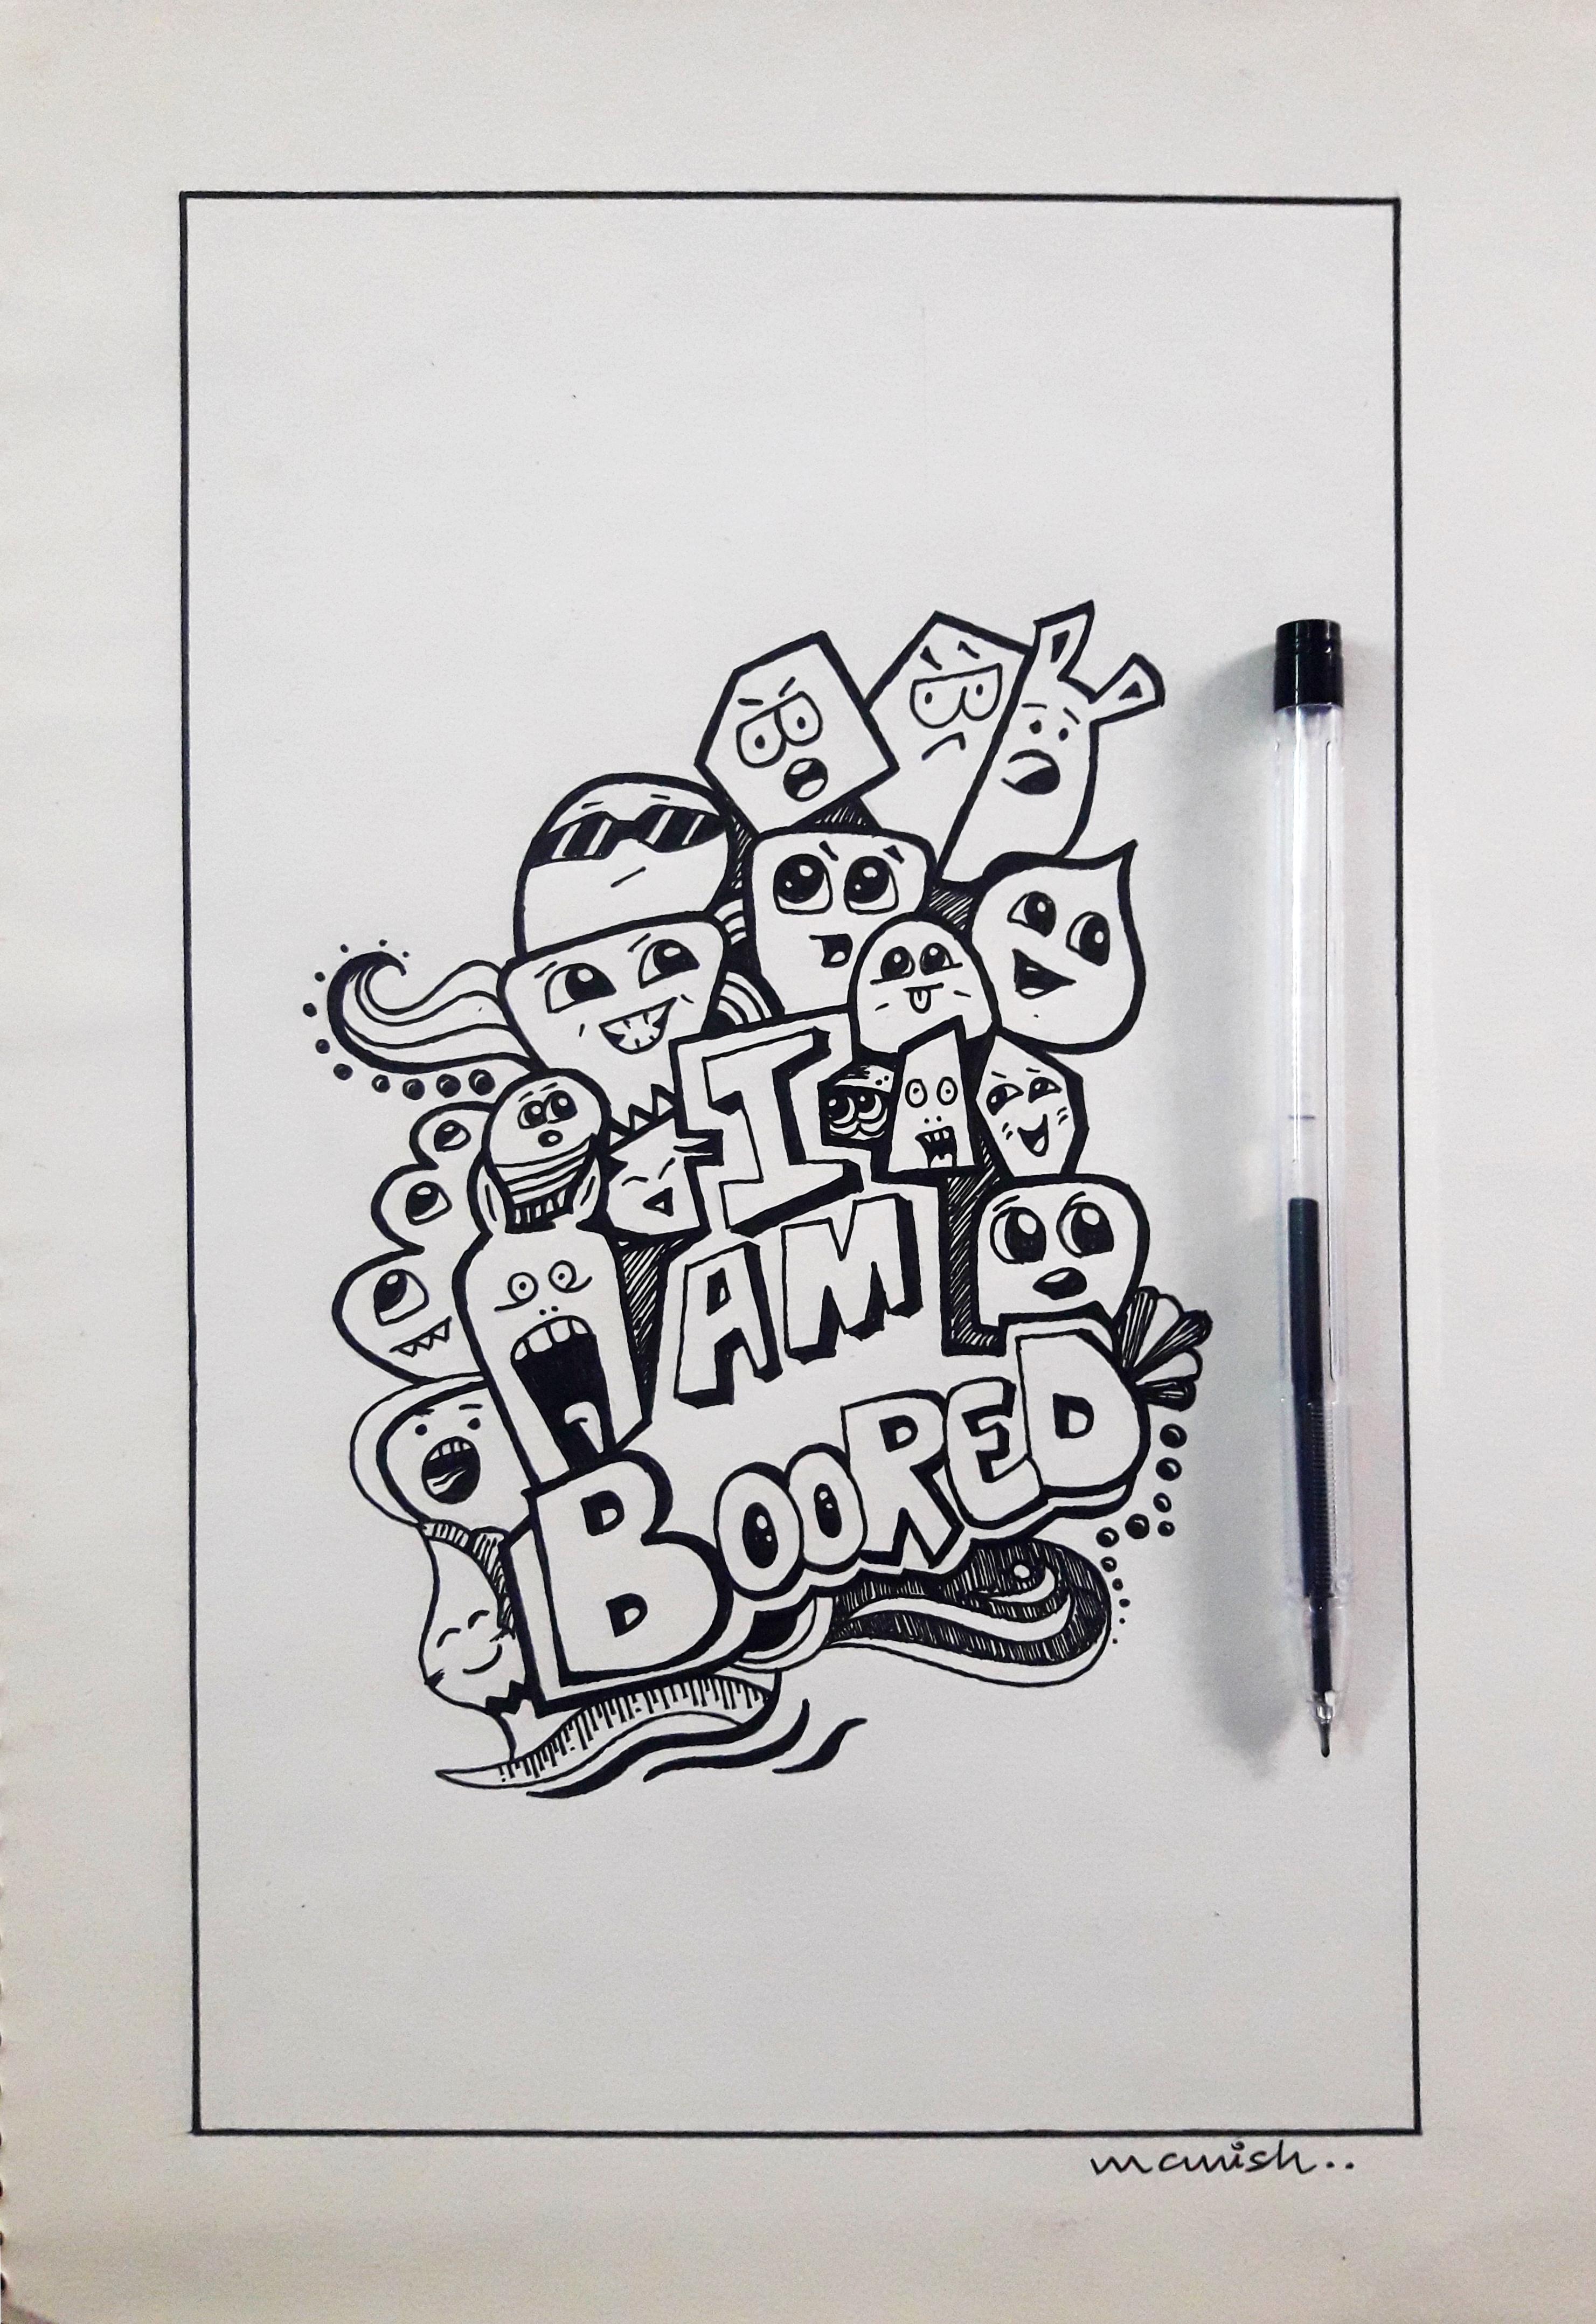 I
AM
BOORED
manish..